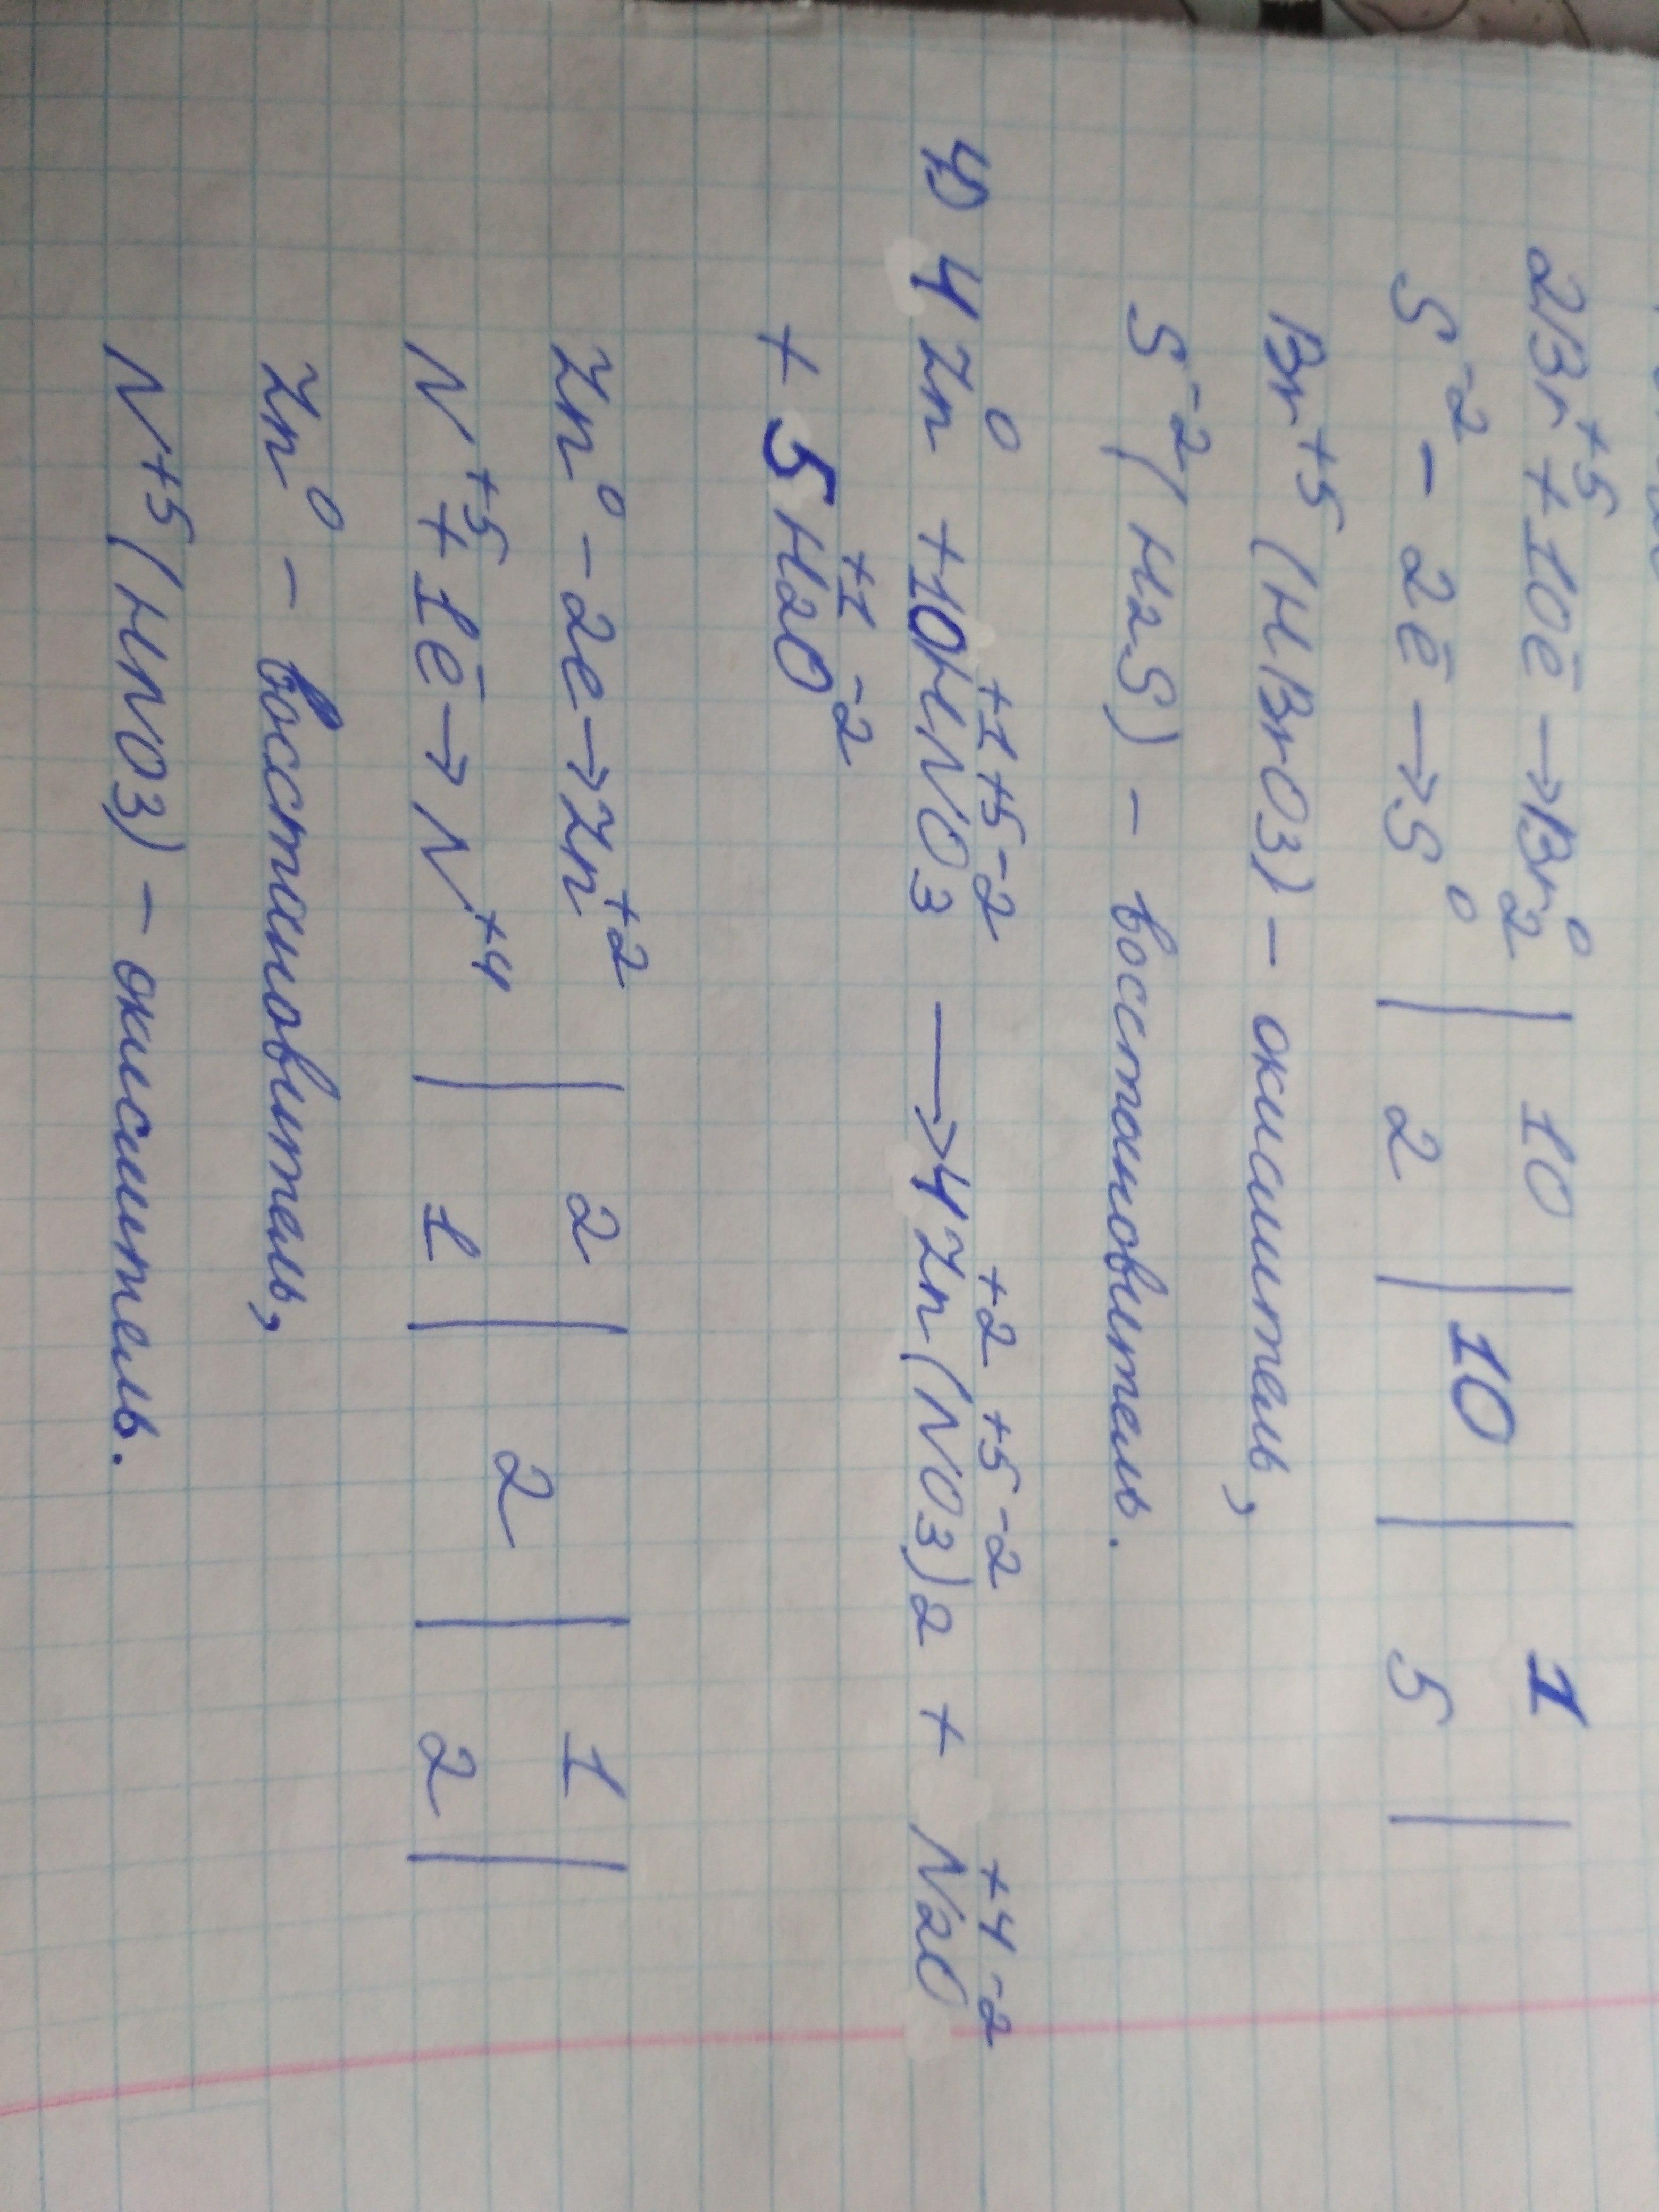 2Br⁺⁵ + 10ē → Br₂⁰ | 10 | 10 | 1 |
S⁻² - 2ē → S⁰ | 2 | | 5 |
Br⁺⁵ (HBrO3) - окислитель,
S⁻² (H2S) - восстановитель.
4) 4Zn⁰ + 10H⁺¹N⁺⁵O3⁻² → 4Zn⁺²(N⁺⁵O3⁻²)2 + N2⁺⁴O⁻²
+ 5H2⁺¹O⁻²
Zn⁰ - 2e → Zn⁺² | 2 | 2 | 1 |
N⁺⁵ + 1ē → N⁺⁴ | 1 | | 2 |
Zn⁰ - восстановитель,
N⁺⁵ (HNO3) - окислитель.